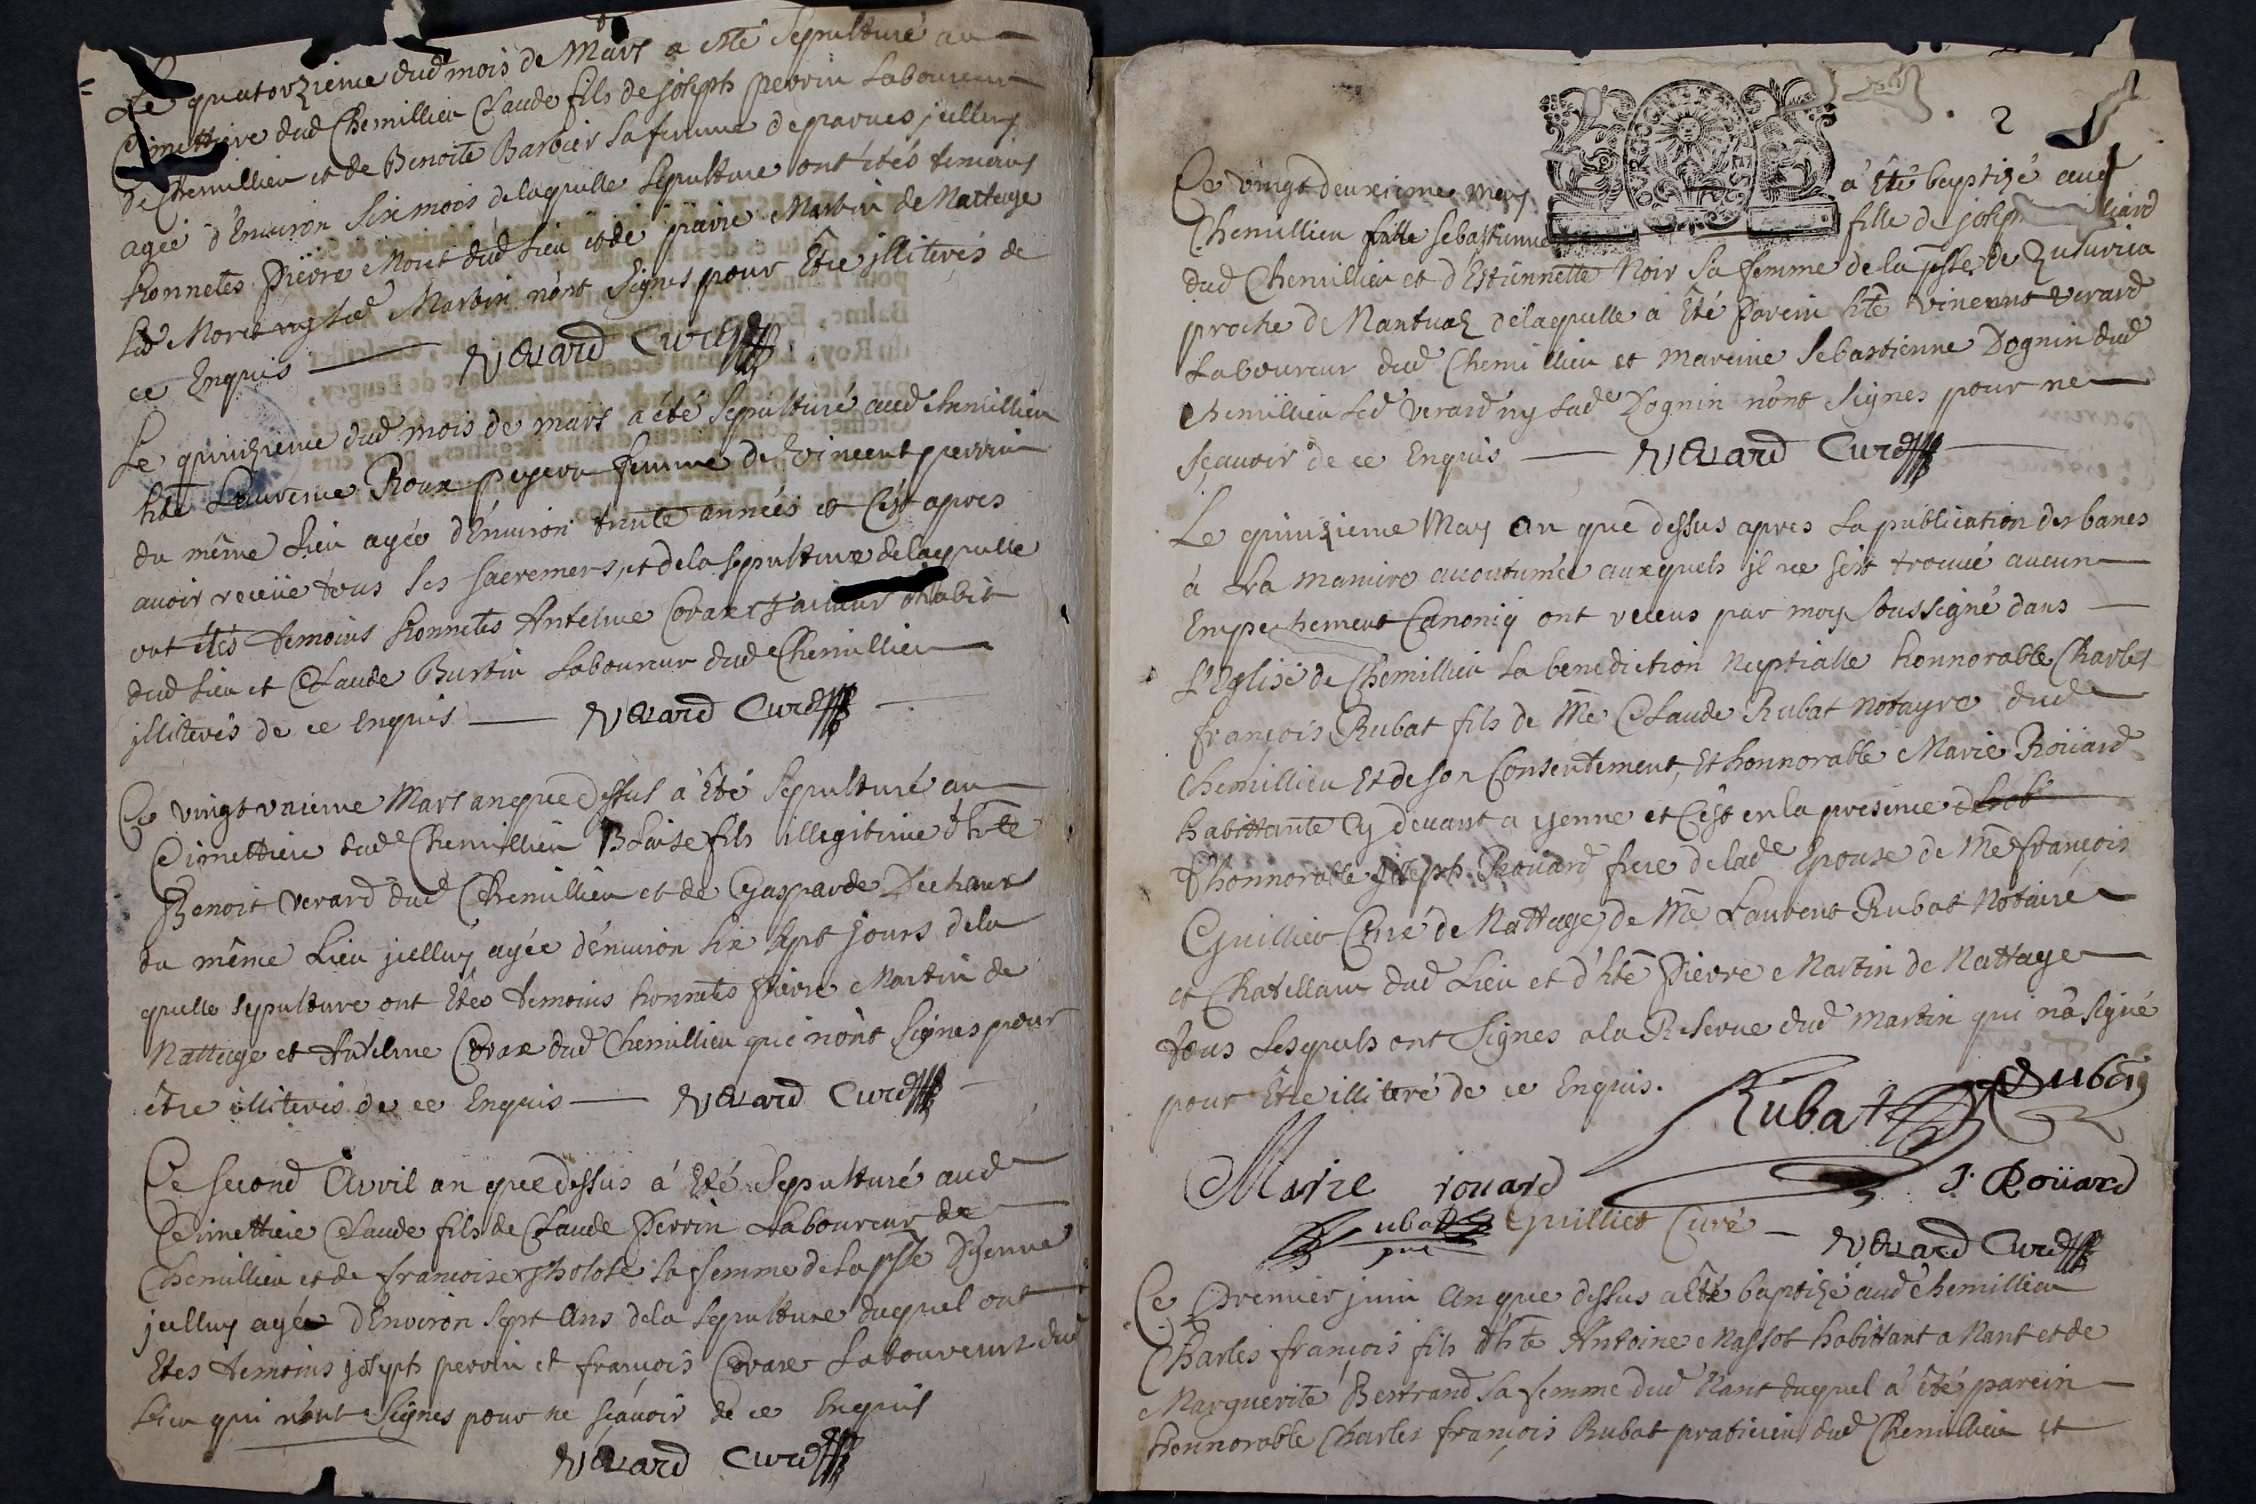 Le quatorzieme dud mois de Mars a esté sepulturé au
Cimettiere dud Chemillieu Claude fils de joseph perrin Laboureur
de Chemillieu et de Benoite Barbier sa femme de parves jcelluy
agée d'Environ six mois delaquelle sepulture ont étés temoins
honnetes Pierre Moret dud Lieu et de pierre Martin de Nattage
led Moret ny led Martin n'ont signes pour Être jlliterés de
ce Enquis
Nevard Curé
Le quinzieme dud mois de mars a été sepulturé aud chemillieu
hte Laurence Roux femme de vincent perrin
du même Lieu agée d'Environ trente années et C'est apres
avoir receüe tous ses sacremens, et de la sepulture delaquelle
ont étés temoins honnetes Antelme Corax habit
dud Lieu et Claude Burtin Laboureur dud Chemillieu
jlliterés de ce Enquis
Nevard Curé
Ce vingt unieme Mars an que dessus a Eté sepulturé au
Cimettiere dud Chemillieu Blaise fils illegitime d'hte
Benoit verard dud Chemillieu et de Gasparde Dechanr
du même Lieu jcelluy agée d'environ six sept jours dela
quelle sepulture ont Etés temoins honnetes Pierre Martin de
Nattage et Antelme Corax dud Chemillieu qui n'ont signes pour
être illiterés de ce Enquis
Nevard Curé
Ce second Avril an que dessus a Eté sepulturé aud
Cimettiere Claude fils de Claude Perrin Laboureur de
Chemillieu et de francoise sa femme de la psse D'yenne
jcelluy agée d'Environ sept ans dela sepulture duquel ont
Etes temoins joseph perrin et francois Corax Laboureurs dud
Lieu qui n'ont signes pour ne sçavoir de ce Enquis
Nevard Curé
2
Ce vingt deuxieme May a été baptizé aud
Chemillieu fille sebastienne fille de joseph
dud Chemillieu et d'Estiennette Noir sa femme de la psse de
proche de Mantuaz delaquelle a Eté Parein hte vincent verard
Laboureur dud Chemillieu et mareine sebastienne Dognin dud
Chemillieu Led verard ny Lade Dognin n'ont signes pour ne
sçavoir de ce Enquis
Nevard Curé
Le quinzieme May an que dessus apres La publication des bancs
à La maniere accoutumée auxquels jl ne s'est trouvé aucun
Empechement Canoniq ont receus par moy soussigné dans
l'Eglise de Chemillieu la benediction Neptialle honnorable Charles
françois Rubat fils de Me Claude Rubat Notayre dud
Chemillieu Et de son Consentement, Et honnorable Marie Roüard
habittante Cy devant a yenne et C'est en la presence
d'honnorable joseph Roüard frere delade Epouse de Me françois
Guilliet Curé de Nattage, de Me Laurent Rubat Notaire
et Chatellain dud Lieu et d'hte Pierre Martin de Nattage
tous Lesquels ont signes a la Reserve dud martin qui n'a signé
pour Etre illiteré de ce Enquis.
Rubat
Marie rouard
J. Roüard
Guilliet Curé
Nevard Curé
Ce Premier juin an que dessus a Eté baptizé aud Chemillieu
Charles françois fils d'hte Antoine Massot habittant a Nant et de
Marguerite Bertrand sa femme dud Nant duquel a été parein
honnorable Charles françois Rubat praticien dud Chemillieu et